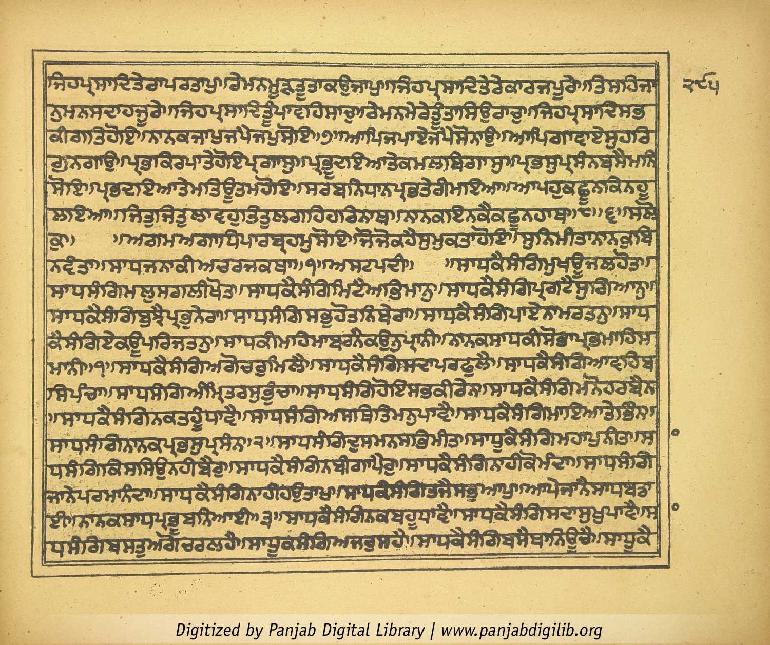 ਜਿਹਪ੍ਰਸਾਦਿਤੇਰਾਪਰਤਾਪੁ॥ਰੇਮਨਮੂੜਤੂਤਾਕਉਜਾਪੁ॥ਜਿਹਪ੍ਰਸਾਦਿਤੇਰੇਕਾਰਜਪੂਰੇ॥ਤਿਸਹਿਜਾ ੨੯੫
ਨੁਮਨਸਦਾਹਜੂਰੇ॥ਜਿਹਪ੍ਰਸਾਦਿਤੂੰਪਾਵਹਿਸਾਚੁ॥ਰੇਮਨਮੇਰੇਤੂੰਤਾਸਿਉਰਾਚੁ॥ਜਿਹਪ੍ਰਸਾਦਿਸਭ
ਕੀਗਤਿਹੋਇ॥ਨਾਨਕਜਾਪੁਜਪੈਜਪੁਸੋਇ॥੭॥ਆਪਿਜਪਾਏਜਪੈਸੋਨਾਉ॥ਆਪਿਗਾਵਾਏਸੁਹਰਿ
ਗੁਨਗਾਉ॥ਪ੍ਰਭਕਿਰਪਾਤੇਹੋਇਪ੍ਰਗਾਸੁ॥ਪ੍ਰਭੂਦਇਆਤੇਕਮਲਬਿਗਾਸੁ॥ਪ੍ਰਭਸੁਪ੍ਰਸੰਨਬਸੈਮਨਿ
ਸੋਇ॥ਪ੍ਰਭਦਇਆਤੇਮਤਿਊਤਮਹੋਇ॥ਸਰਬਨਿਧਾਨਪ੍ਰਭਤੇਰੀਮਇਆ॥ਆਪਹੁਕਛੂਨਕਿਨਹੂ
ਲਇਆ॥ਜਿਤੁਜਿਤੁਲਾਵਹੁਤਿਤੁਲਗਹਿਹਰਿਨਾਥ॥ਨਾਨਕਇਨਕੈਕਛੂਨਹਾਥ॥੮॥੬॥ਸਲੋ
ਕੁ॥ ॥ਅਗਮਅਗਾਧਿਪਾਰਬ੍ਰਹਮੁਸੋਇ॥ਜੋਜੋਕਹੈਸੁਮੁਕਤਾਹੋਇ॥ਸੁਨਿਮੀਤਾਨਾਨਕੁਬਿ
ਨਵੰਤਾ॥ਸਾਧਜਨਾਕੀਅਚਰਜਕਥਾ॥੧॥ਅਸਟਪਦੀ॥ ॥ਸਾਧਕੈਸੰਗਿਮੁਖਊਜਲਹੋਤ॥
ਸਾਧਸੰਗਿਮਲੁਸਗਲੀਖੋਤ॥ਸਾਧਕੈਸੰਗਿਮਿਟੈਅਭਿਮਾਨੁ॥ਸਾਧਕੈਸੰਗਿਪ੍ਰਗਟੈਸੁਗਿਆਨੁ॥
ਸਾਧਕੈਸੰਗਿਬੁਝੈਪ੍ਰਭੁਨੇਰਾ॥ਸਾਧਸੰਗਿਸਭੁਹੋਤਨਿਬੇਰਾ॥ਸਾਧਕੈਸੰਗਿਪਾਏਨਾਮਰਤਨੁ॥ਸਾਧ
ਕੈਸੰਗਿਏਕਊਪਰਿਜਤਨੁ॥ਸਾਧਕੀਮਹਿਮਾਬਰਨੈਕਉਨੁਪ੍ਰਾਨੀ॥ਨਾਨਕਸਾਧਕੀਸੋਭਾਪ੍ਰਭਮਾਹਿਸ
ਮਾਨੀ॥੧॥ਸਾਧਕੈਸੰਗਿਅਗੋਚਰੁਮਿਲੈ॥ਸਾਧਕੈਸੰਗਿਸਦਾਪਰਫੁਲੈ॥ਸਾਧਕੈਸੰਗਿਆਵਹਿਬ
ਸਿਪੰਚਾ॥ਸਾਧਸੰਗਿਅੰਮ੍ਰਿਤਰਸੁਭੁੰਚਾ॥ਸਾਧਸੰਗਿਹੋਇਸਭਕੀਰੇਨ॥ਸਾਧਕੈਸੰਗਿਮਨੋਹਰਬੈਨ
॥ਸਾਧਕੈਸੰਗਿਨਕਤਹੂੰਧਾਵੈ॥ਸਾਧਸੰਗਿਅਸਥਿਤਿਮਨੁਪਾਵੈ॥ਸਾਧਕੈਸੰਗਿਮਾਇਆਤੇਭਿੰਨ॥
ਸਾਧਸੰਗਿਨਾਨਕਪ੍ਰਭਸੁਪ੍ਰਸੰਨ॥੨॥ਸਾਧਸੰਗਿਦੁਸਮਨਸਭਿਮੀਤ॥ਸਾਧੂਕੈਸੰਗਿਮਹਾਪੁਨੀਤ॥ਸਾ
ਧਸੰਗਿਕਿਸਸਿਉਨਹੀਬੈਰੁ॥ਸਾਧਕੈਸੰਗਿਨਬੀਗਾਪੈਰੁ॥ਸਾਧਕੈਸੰਗਿਨਾਹੀਕੋਮੰਦਾ॥ਸਾਧਸੰਗਿ
ਜਾਨੇਪਰਮਾਨੰਦਾ॥ਸਾਧਕੈਸੰਗਿਨਾਹੀਹਉਤਾਪੁ॥ਸਾਧਕੈਸੰਗਿਤਜੈਸਭੁਆਪੁ॥ਆਪੇਜਾਨੈਸਾਧਬਡਾ
ਈ॥ਨਾਨਕਸਾਧਪ੍ਰਭੂਬਨਿਆਈ॥੩॥ਸਾਧਕੈਸੰਗਿਨਕਬਹੂਧਾਵੈ॥ਸਾਧਕੈਸੰਗਿਸਦਾਸੁਖੁਪਾਵੈ॥ਸਾ
ਧਸੰਗਿਬਸਤੁਅਗੋਚਰਲਹੈ॥ਸਾਧੂਕੈਸੰਗਿਅਜਰੁਸਹੈ॥ਸਾਧਕੈਸੰਗਿਬਸੈਥਾਨਿਊਚੈ॥ਸਾਧੂਕੈ
Digitized by Panjab Digital Library | www.panjabdigilib.org